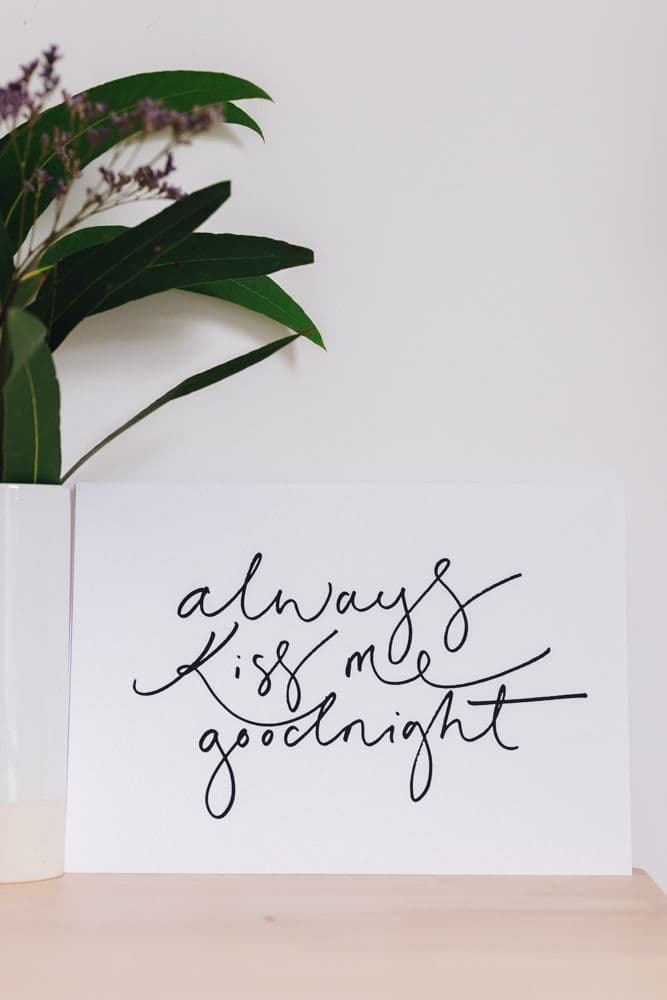 always
Kiss me
goodnight